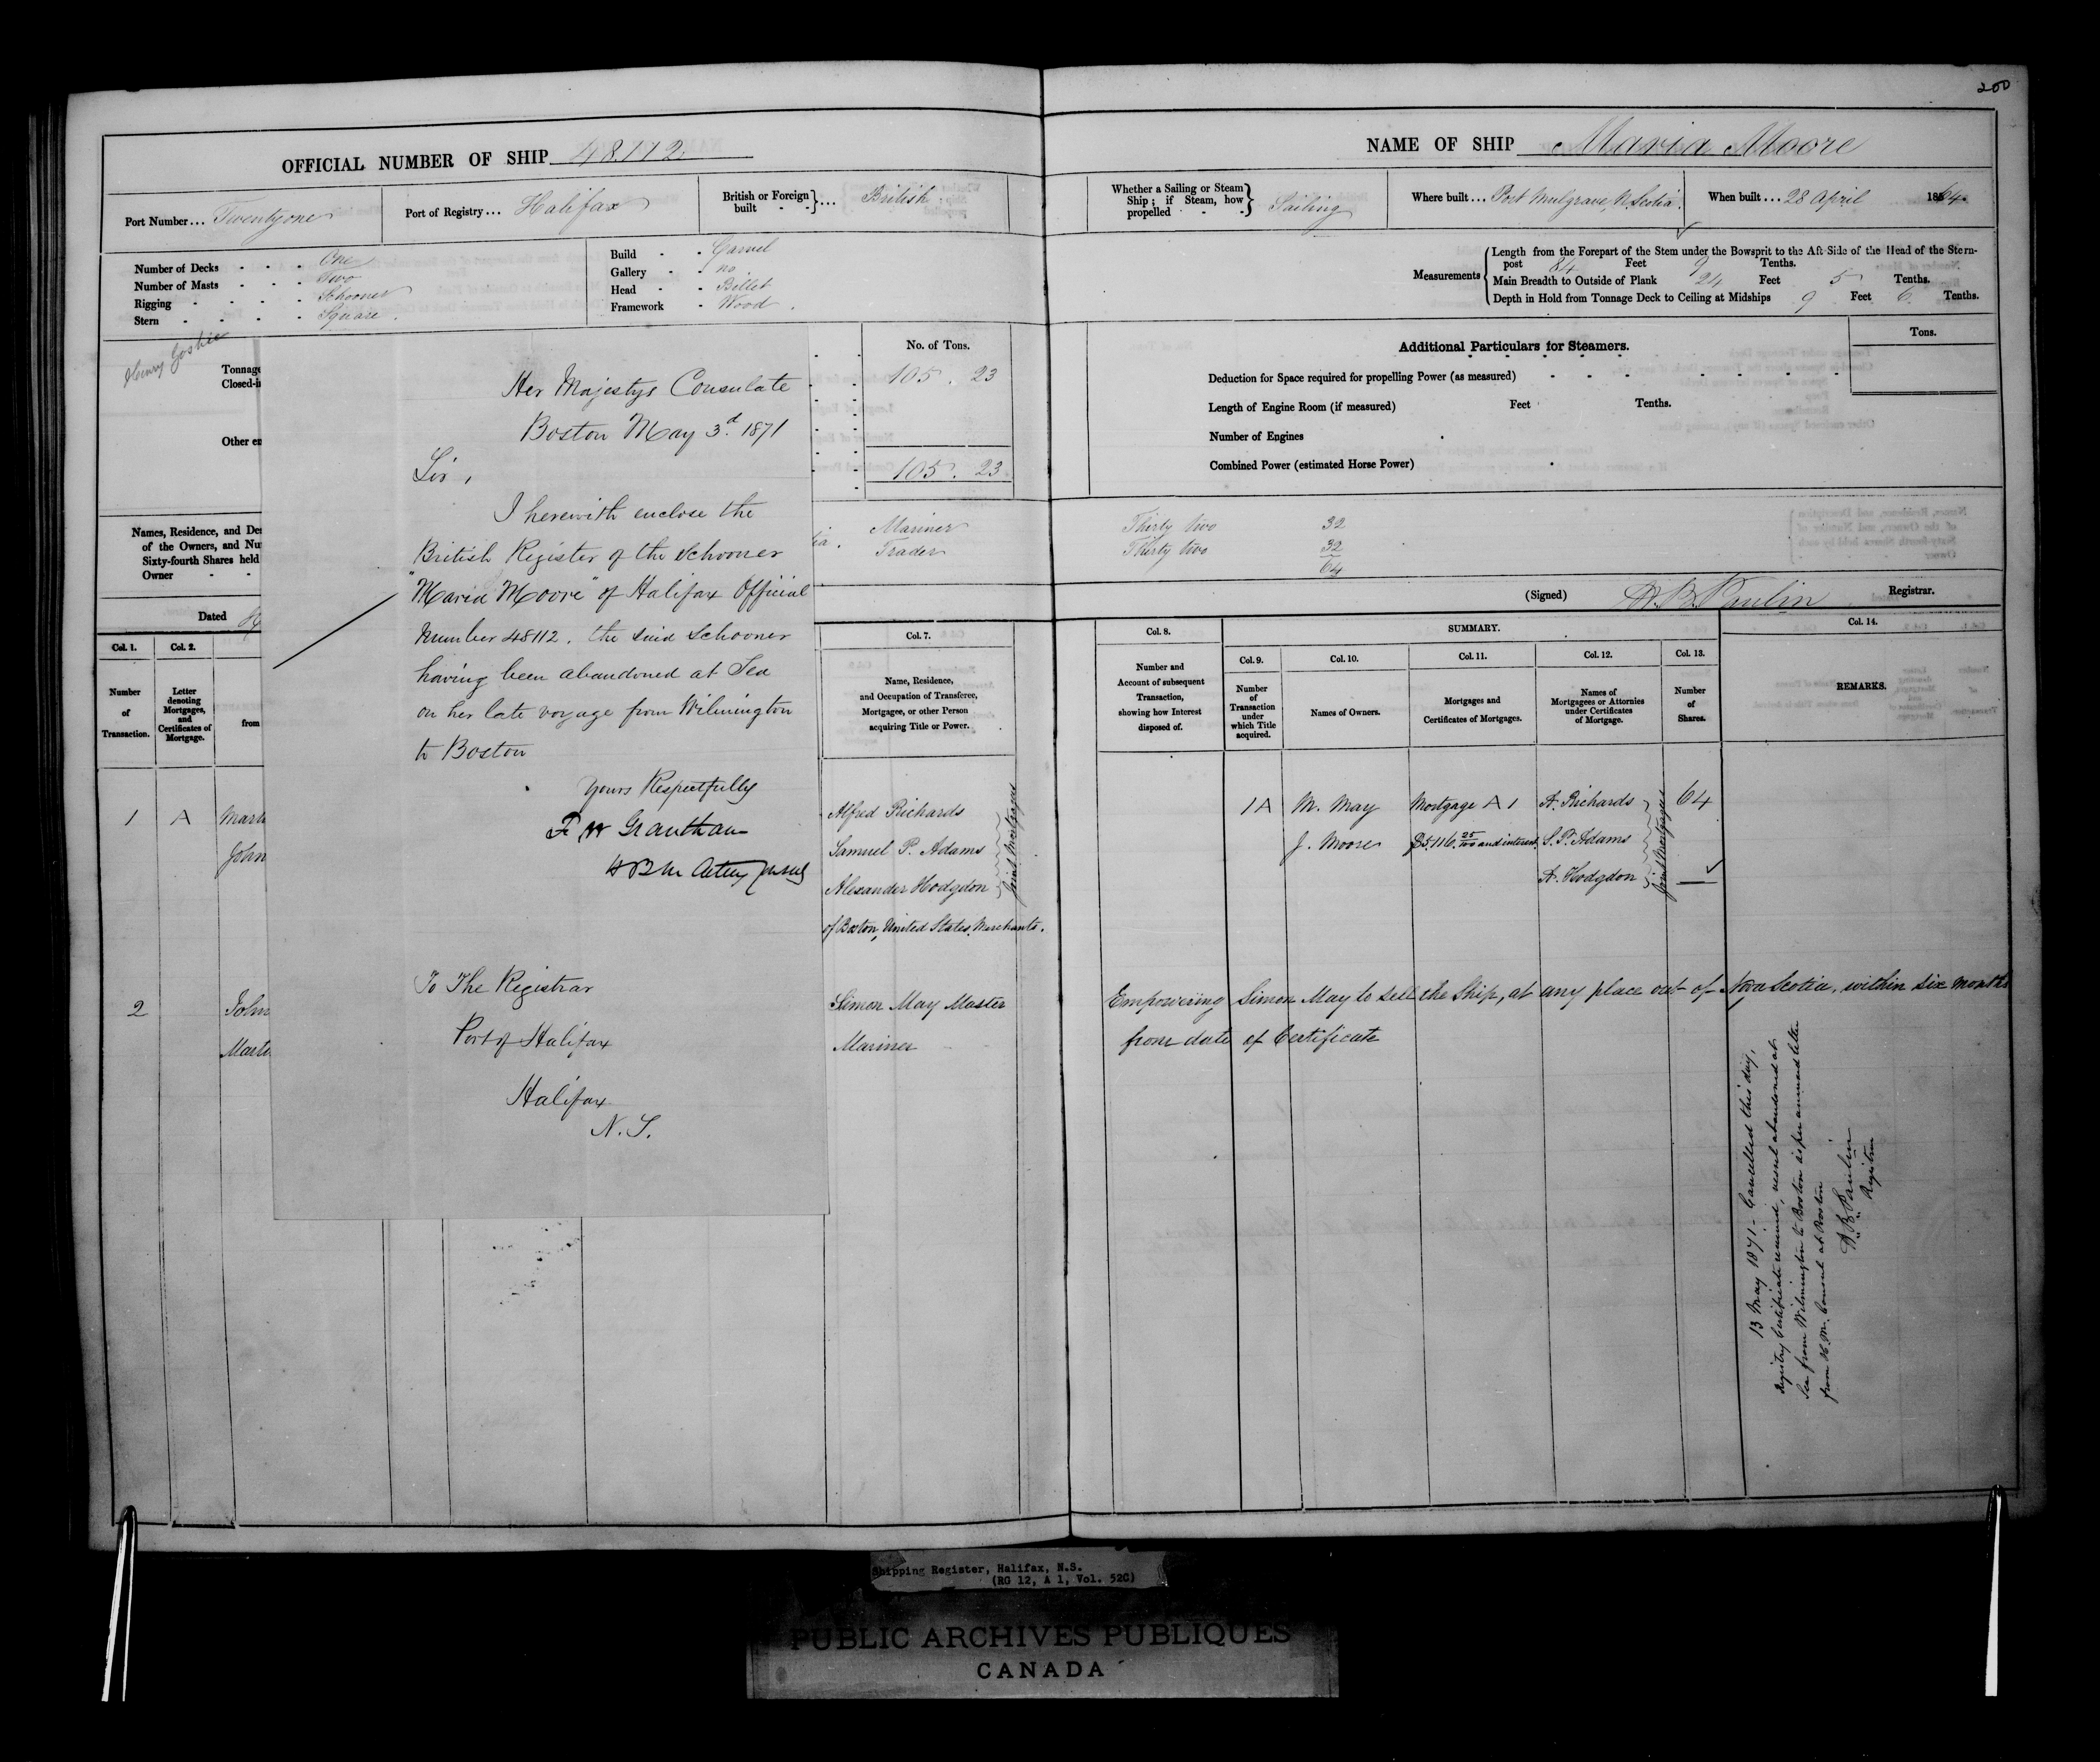 200
OFFICIAL NUMBER OF SHIP 48.112.
NAME OF SHIP Maria Moore
Port Number... Twenty one
Port of Registry... Halifax
British or Foreign built - - }... British
Whether a Sailing or Steam Ship; if Steam, how propelled - - } Sailing
Where built... Port Mulgrave, N. Scotia.
When built... 28 April 1864.
Number of Decks - - - One
Number of Masts - - - Two
Rigging - - - - Schooner
Stern - - - - Square.
Build - - Carvel
Gallery - - no
Head - - Billet
Framework - Wood.
Measurements
Length from the Forepart of the Stem under the Bowsprit to the Aft Side of the Head of the Stern-
post 84 Feet 9 Tenths.
Main Breadth to Outside of Plank 24 Feet 5 Tenths.
Depth in Hold from Tonnage Deck to Ceiling at Midships 9 Feet 6 Tenths.
Henry
Tonnage
Closed-i
Other en
No. of Tons.
105. 23
105. 23
Additional Particulars for Steamers.
Tons.
Deduction for Space required for propelling Power (as measured)
Length of Engine Room (if measured) Feet Tenths.
Number of Engines
Combined Power (estimated Horse Power)
Her Majestys Consulate
Boston May 3.d 1871
Sir,
I herewith enclose the
British Register of the Schooner
"Maria Moore" of Halifax Official
Number 48112. the said Schooner
having been abandoned at Sea
on her late voyage from Wilmington
to Boston
Yours Respectfully
To The Registrar
Port of Halifax
Halifax
N.S.
Names, Residence, and Des
of the Owners, and Nu
Sixty-fourth Shares held
Owner - -
ia. Mariner Thirty two 32
Trader Thirty two 32
64
Dated
(Signed) Registrar.
Col. 1.
Col. 2.
Col. 7.
Col. 8.
SUMMARY.
Col. 9.
Col. 10.
Col. 11.
Col. 12.
Col. 13.
Col. 14.
Number of Transaction.
Letter denoting Mortgages, and Certificates of Mortgage.
from
Name, Residence, and Occupation of Transferee, Mortgagee, or other Person acquiring Title or Power.
Number and Account of subsequent Transaction, showing how Interest disposed of.
Number of Transaction under which Title acquired.
Names of Owners.
Mortgages and Certificates of Mortgages.
Names of Mortgagees or Attornies under Certificates of Mortgage.
Number of Shares.
REMARKS.
1 A Mart
John
Alfred Richards
Samuel P. Adams
Alexander Hodgdon
Joint Mortgagees
of Boston, United States, Merchants.
1A M. May Mortgage A 1 A. Richards 64
J. Moore $5.116. 25/100 and interest. S. P. Adams
A. Hodgdon
Joint Mortgagees
2 John
Mart
Simon May Master
Mariner
Empowering Simon May to sell the Ship, at any place out of Nova Scotia, within six months
from date of Certificate
13 May 1871 - Cancelled this day,
Registry Certificate returned, vessel abandoned at
Sea from Wilmington to Boston as per annexed letter
from H. M. Consul at Boston
Registrar
Shipping Register, Halifax, N.S.
(RG 12, A 1, Vol. 52C)
PUBLIC ARCHIVES PUBLIQUES
CANADA